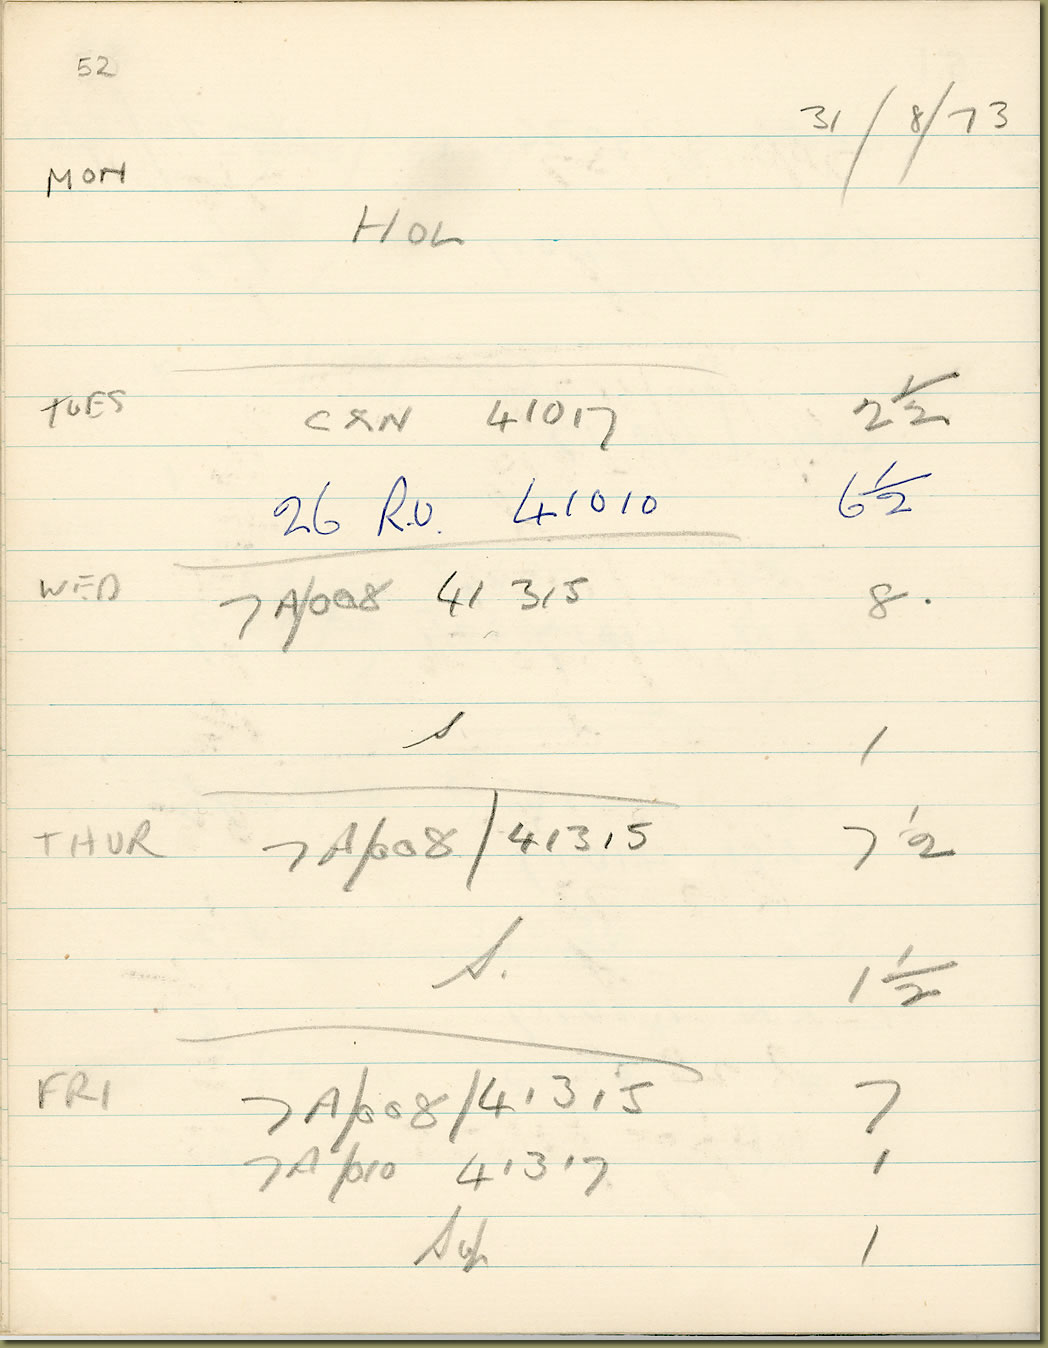 52
31/8/73
MON
HOL
TUES C&N 41017 2½
26 R.U. 41010 6½
WED 7A/008 41315 8.
S 1
THUR 7A/008/41315 7½
S. 1½
FRI 7A/008/41315 7
7A/010 41317 1
Sup 1